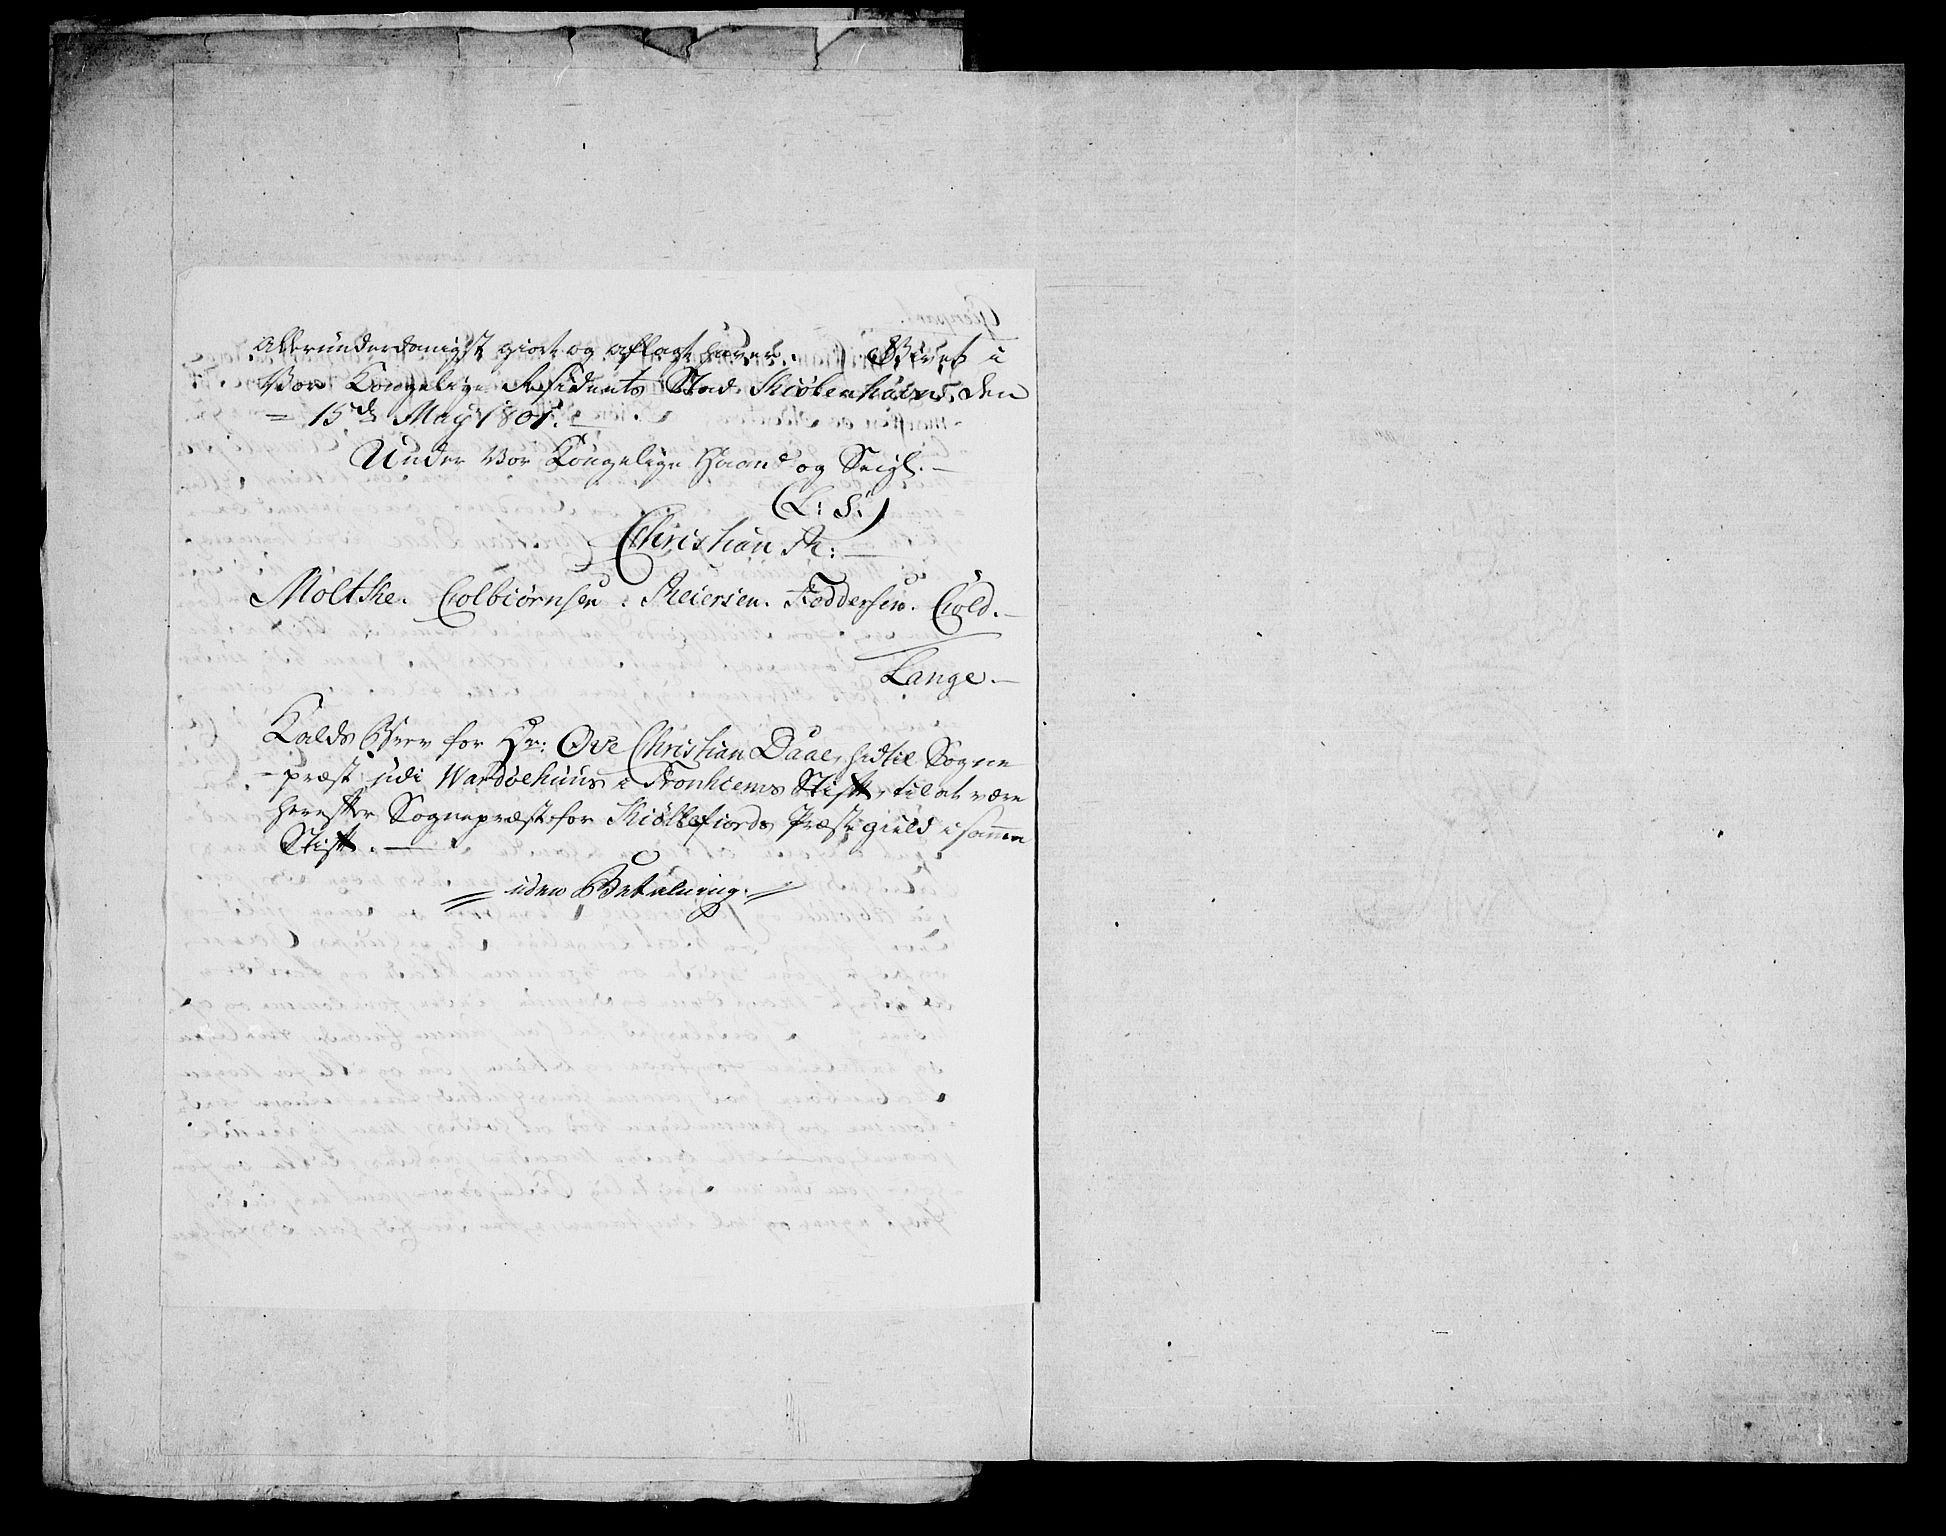 allerunderdanigst giort og aflagt haver. Givet i
Vor Kongelige Residents Stad Kiøbenhavn, den
15de May 1801.
Under Vor Kongelige Haand og Seigl.
(L: S:)
Christian R:
Moltke. Colbiørnsen. Reiersen. Feddersen. Cold.
Lange.
Kalds Brev for Hr: Ove Christian Daae, hidtil Sogne
præst udi Wardøehuus i Tronhiems Stift, til at være
herefter Sognepræst for Kiøllefiords Præstegield i samme
Stift.
uden Betalning.